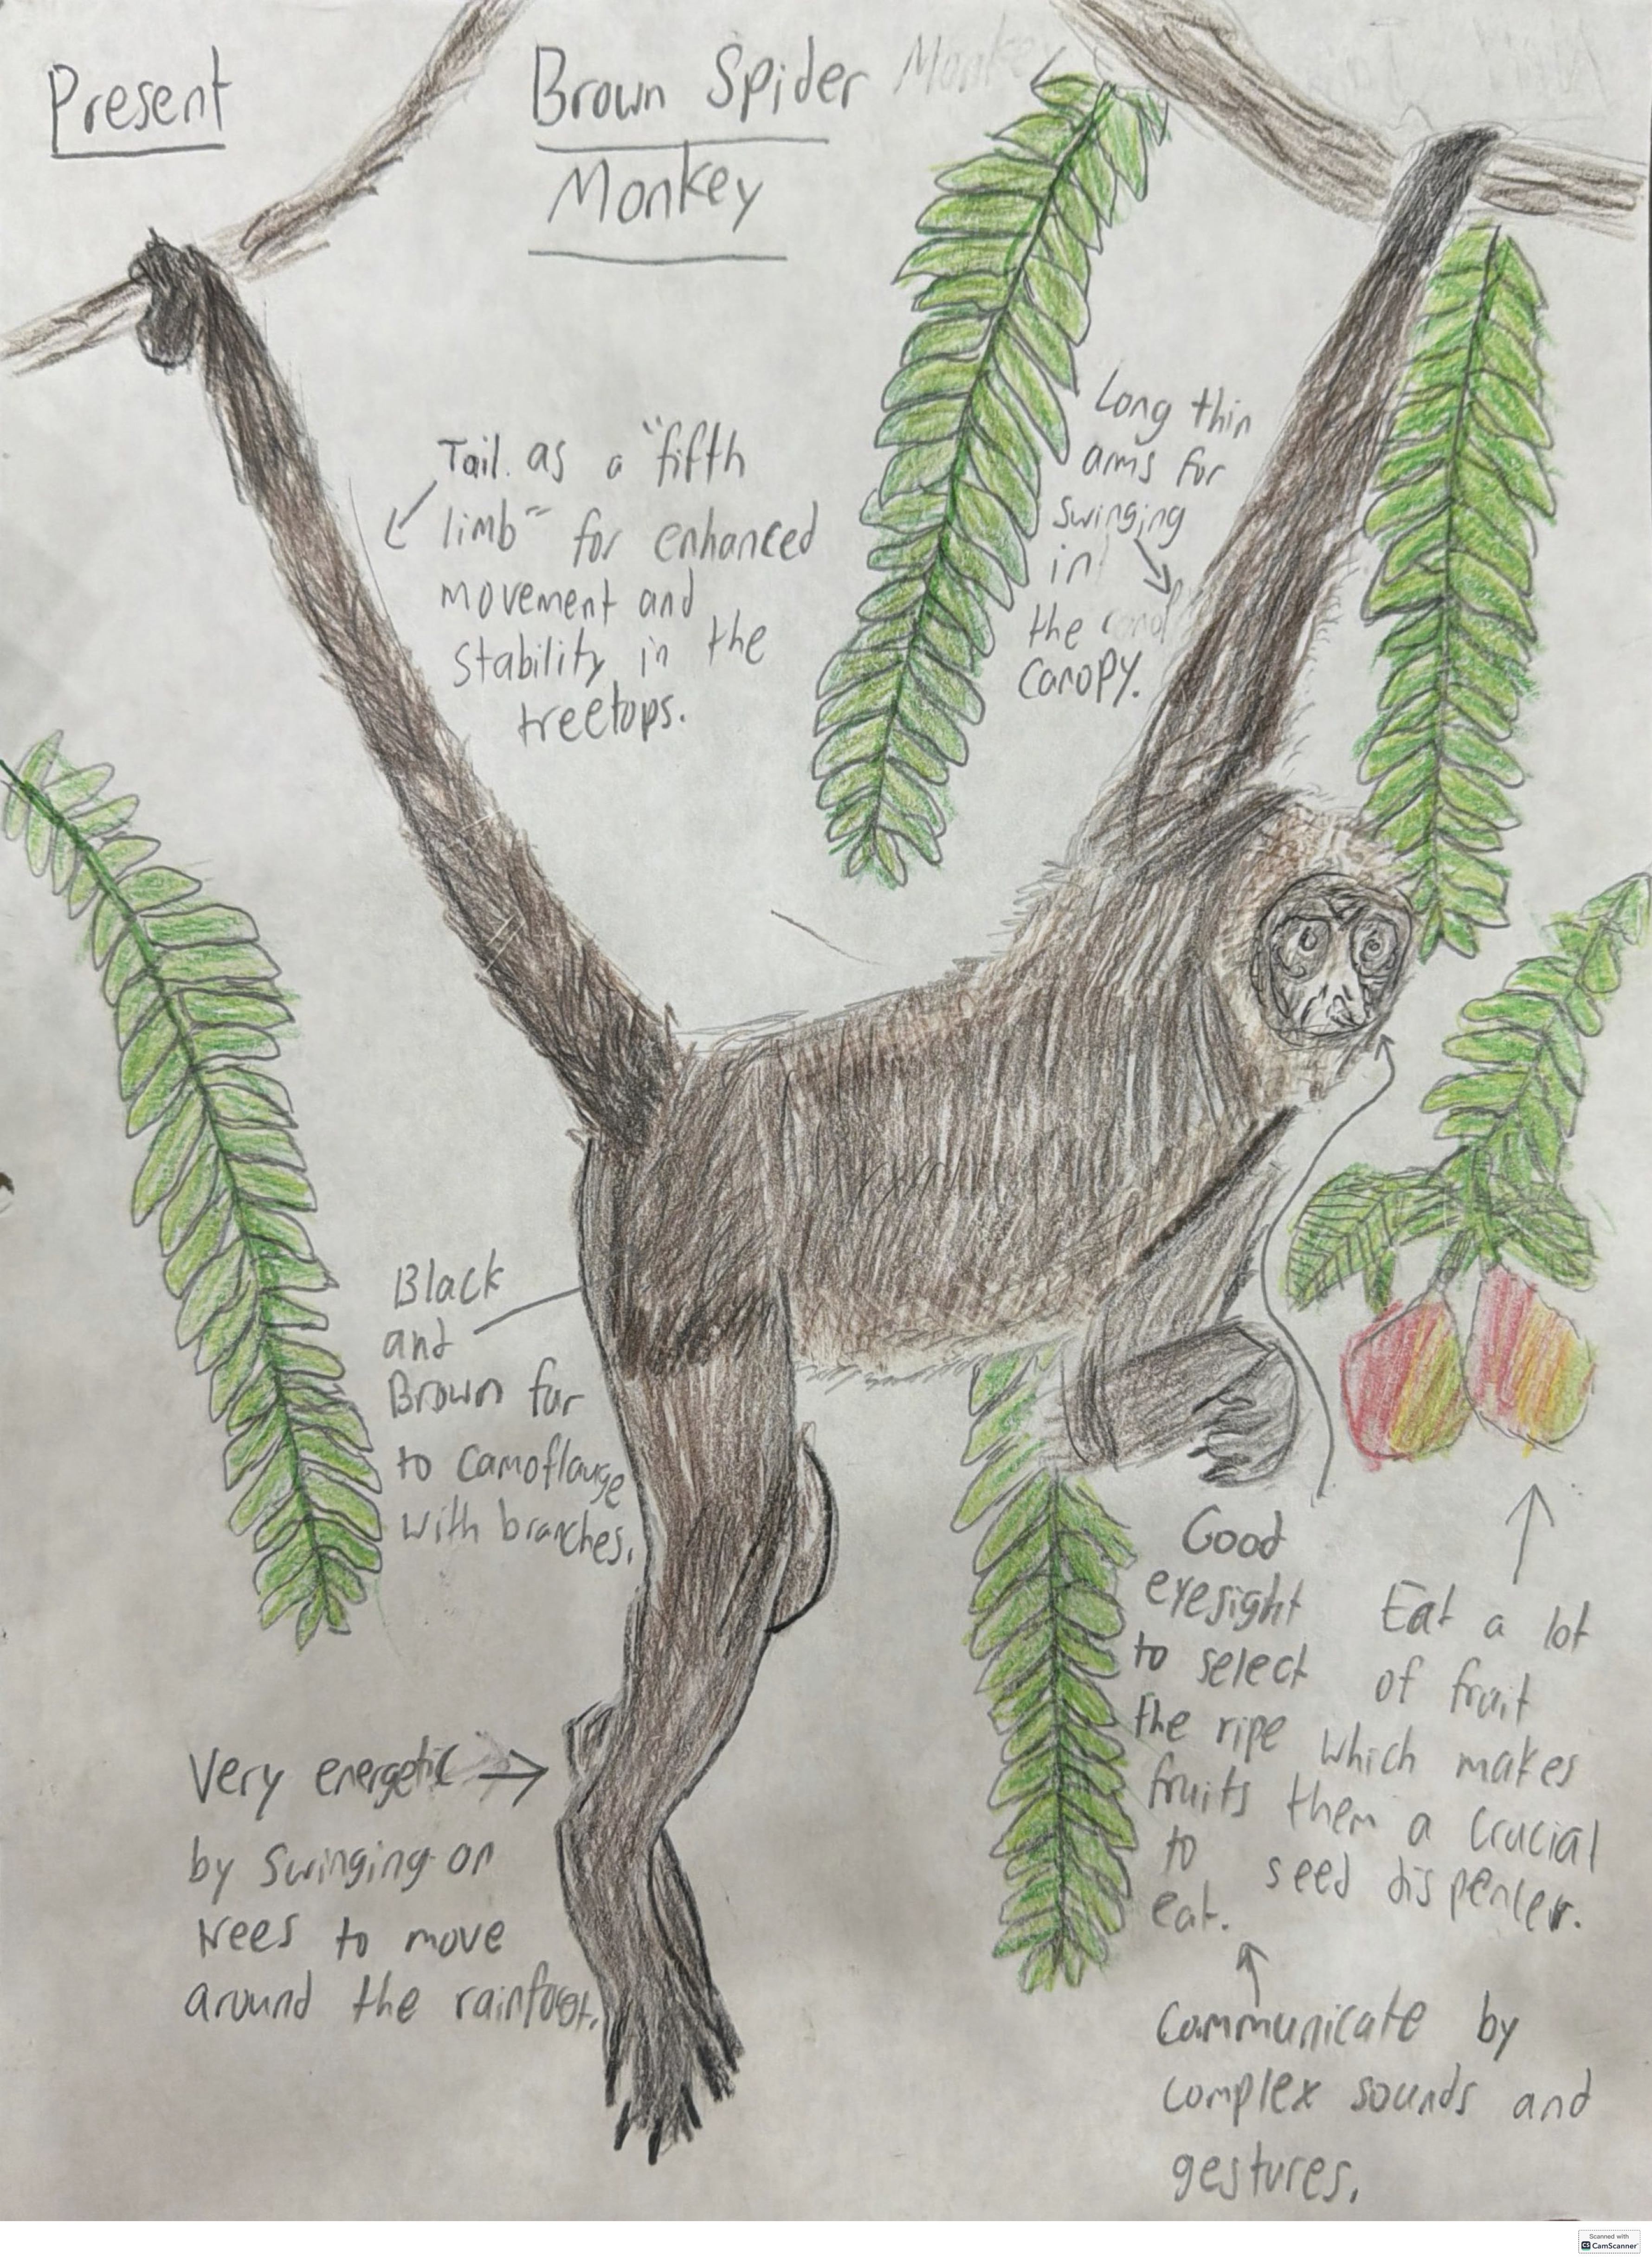 Present
Brown Spider
Monkey
Tail as a "fifth
limb" for enhanced
movement and
stability in the
treetops.
Long thin
arms for
swinging
in
the
canopy.
Black
and
Brown fur
to camoflauge
with branches.
Very energetic
by swinging on
trees to move
around the rainforest.
Good
eyesight
to select
the ripe
fruits
to
eat.
Eat a lot
of fruit
which makes
them a crucial
seed dispenser.
Communicate by
complex sounds and
gestures.
Scanned with
CamScanner